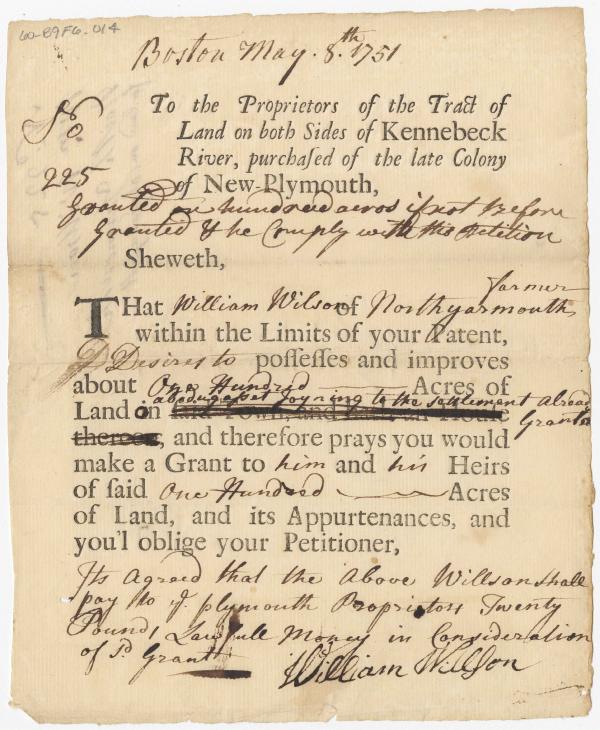 60-B9F6-014
Boston May. 8.th 1751
No
225
To the Proprietors of the Tract of
Land on both Sides of Kennebeck
River, purchaſed of the late Colony
of New-Plymouth,
Granted on hundred acros if not before
Granted & he Comply with the Petition
Sheweth,
farmer
THat William Wilson of Northyarmouth
within the Limits of your Patent,
Desires to poſſeſſes and improves
about One Hundred Acres of
joyning to the settlement Alread
Land
Granted
thereon, and therefore prays you would
make a Grant to him and his Heirs
of ſaid One Hundred Acres
of Land, and its Appurtenances, and
you'l oblige your Petitioner,
Its Agreed that the Above Willson shall
pay to ye. plymouth Proprietors Twenty
Pounds Lawfull Money in Consideration
of sd. Grant
William Willson